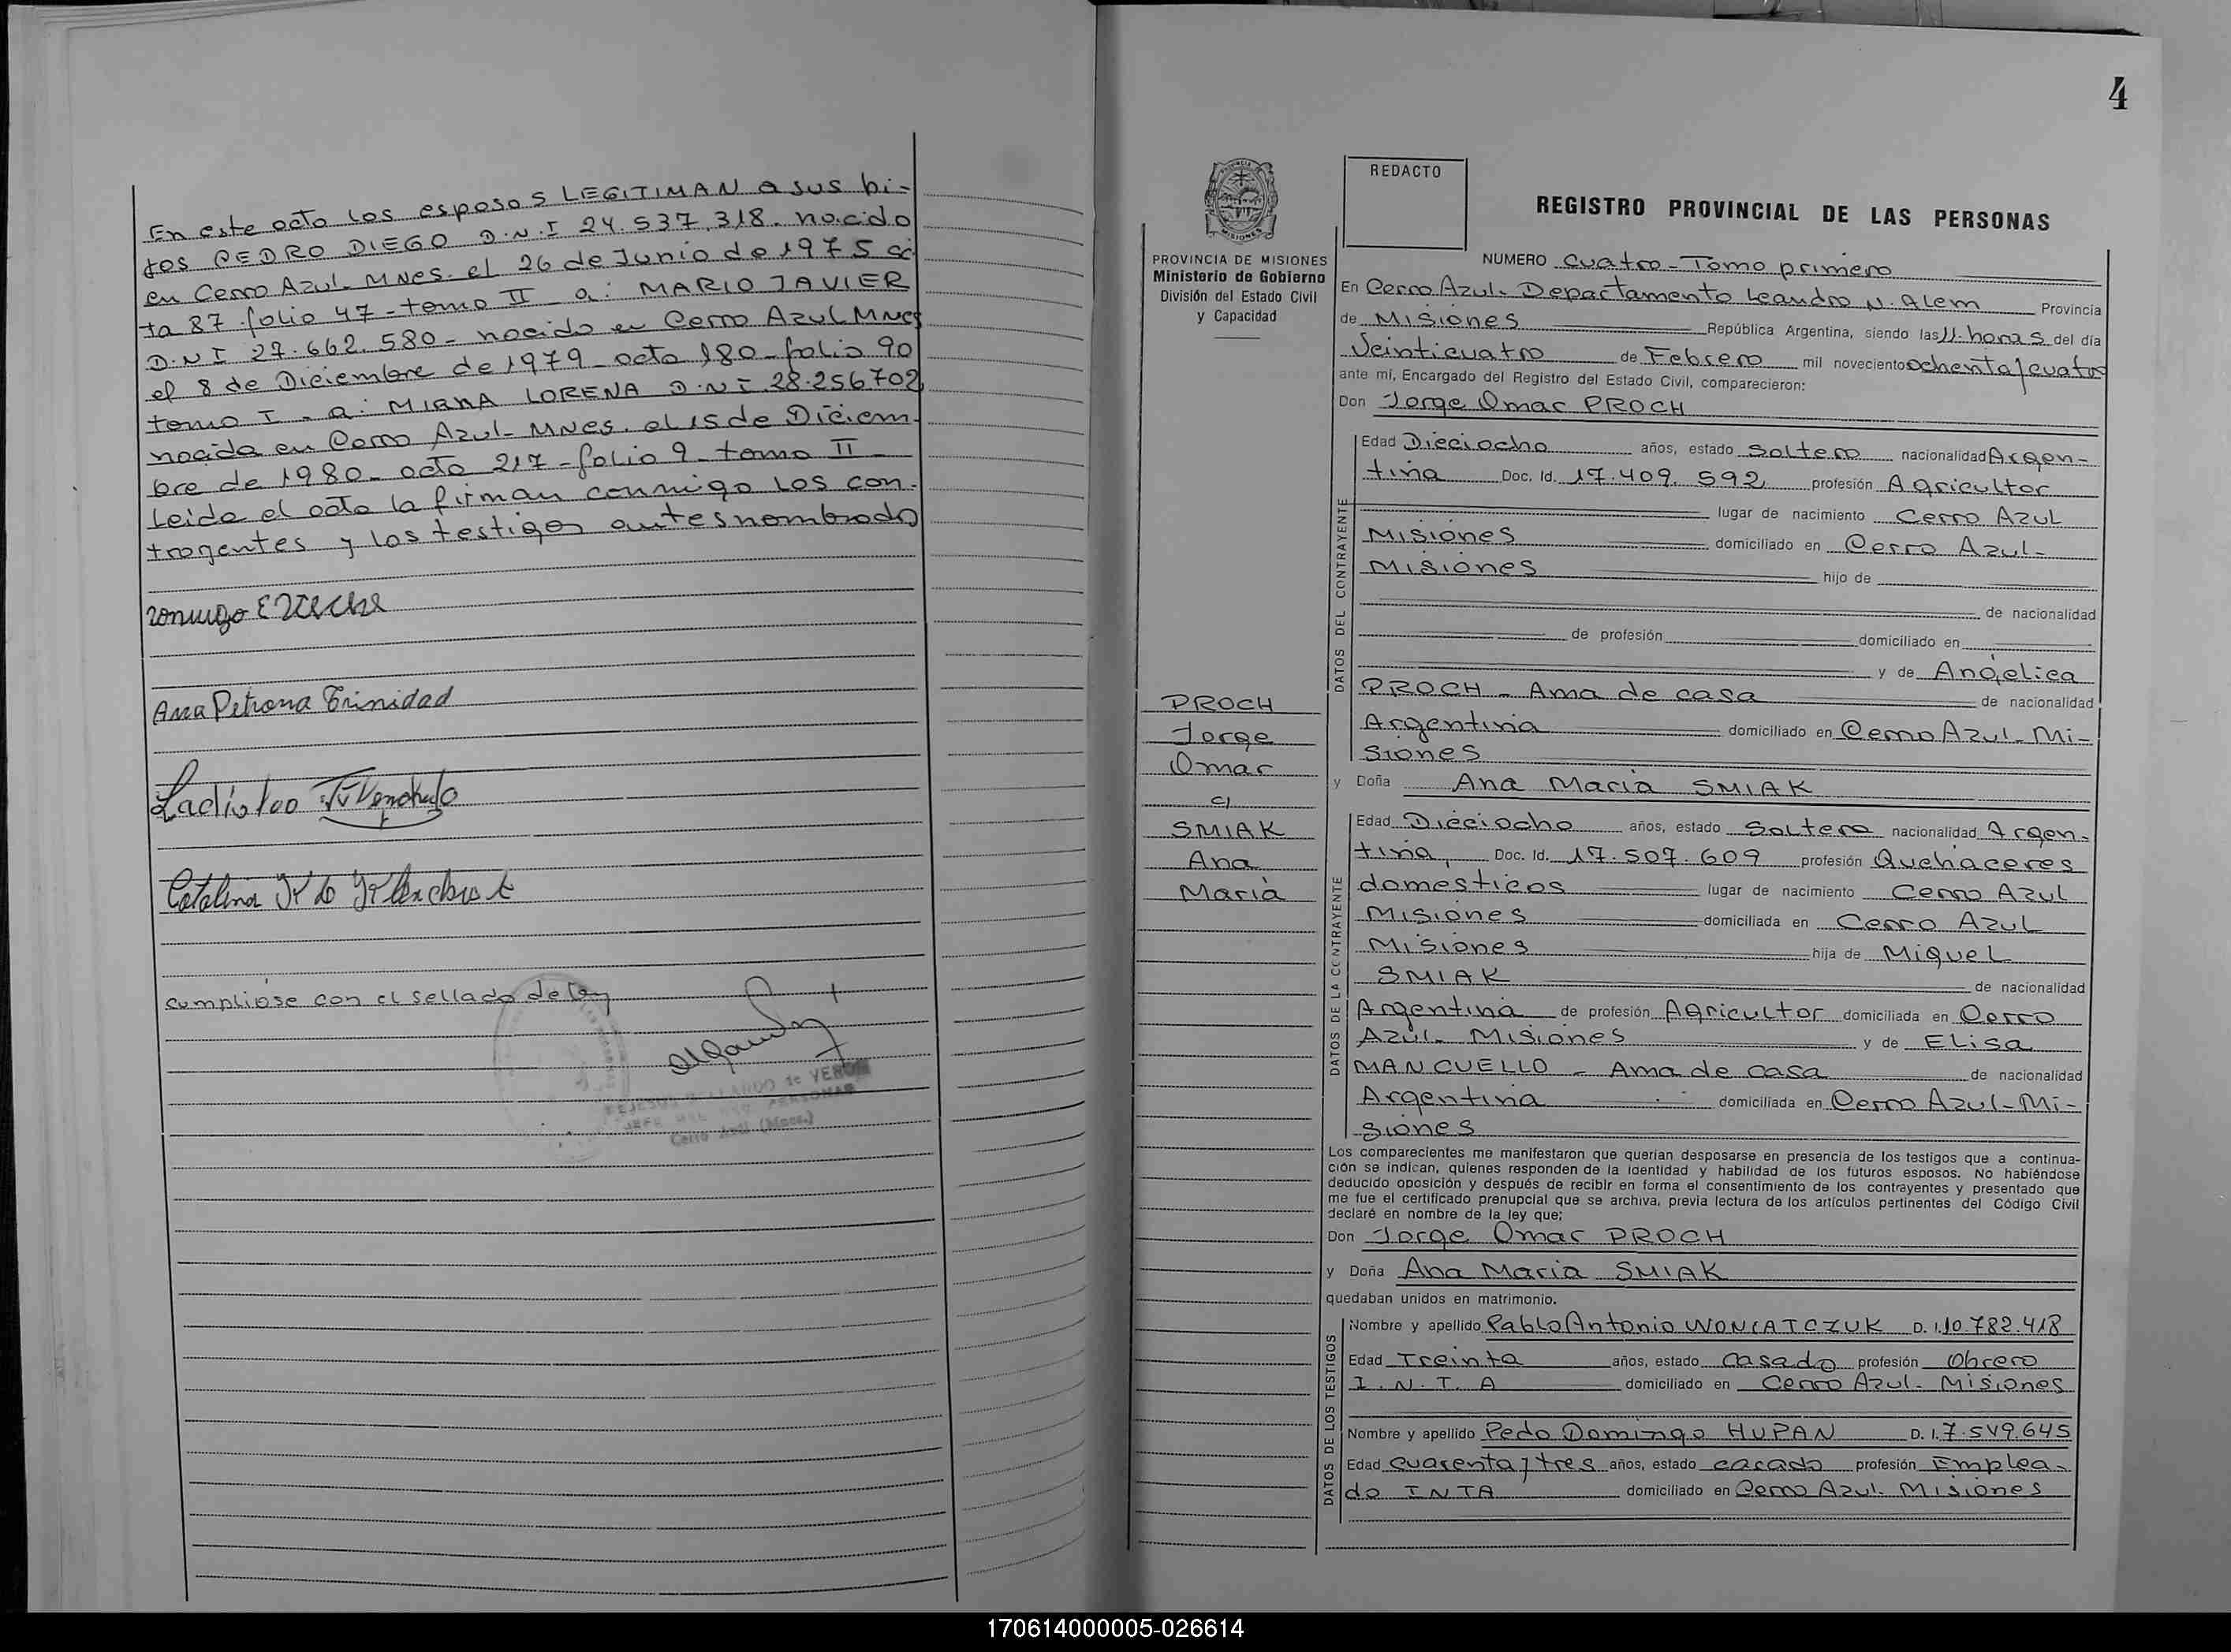 En este acto los esposos LEGITIMAN a sus hi-
jos PEDRO DIEGO D.N.I 24.537.318. nacido
en Cerro Azul. MNes. el 26 de Junio de 1975 ac
ta 87 folio 47 - tomo II - a: MARIO JAVIER
D.N.I 27.662.580 - nacido en Cerro Azul MNes
el 8 de Diciembre de 1979 - acta 180 - folio 90
tomo I - a: MIRNA LORENA D.N.I 28.256702
nacida en Cerro Azul - MNes. el 15 de Diciem
bre de 1980 - acta 217 - folio 9 - tomo II -
Leida el acta la firman conmigo los con-
trayentes y los testigos antes nombrado
Ana Petrona Trinidad
Catalina
cumpliose con el sellado de ley
de VERON
JEFE PERSONAS
Cerro Azul (Mnes.)
4
REDACTO
REGISTRO PROVINCIAL DE LAS PERSONAS
PROVINCIA DE MISIONES
Ministerio de Gobierno
División del Estado Civil
y Capacidad
PROCH
Jorge
Omar
c/
SMIAK
Ana
Maria
NUMERO cuatro - Tomo primero
En Cerro Azul. Departamento Leandro N. Alem Provincia
de Misiones República Argentina, siendo las 11. horas del día
Veinticuatro de Febrero mil novecientos ochenta y cuatro
ante mí, Encargado del Registro del Estado Civil, comparecieron:
Don Jorge Omar PROCH
DATOS DEL CONTRAYENTE
Edad Dieciocho años, estado Soltero nacionalidad Argen-
tina Doc. Id. 17.409.592 profesión Agricultor
lugar de nacimiento Cerro Azul
Misiones domiciliado en Cerro Azul-
Misiones hijo de
de nacionalidad
de profesión domiciliado en
y de Angelica
PROCH - Ama de casa de nacionalidad
Argentina domiciliado en Cerro Azul - Mi-
siones
y Doña Ana Maria SMIAK
DATOS DE LA CONTRAYENTE
Edad Dieciocho años, estado Soltera nacionalidad Argen-
tina, Doc. Id. 17.507.609 profesión Quehaceres
domesticos lugar de nacimiento Cerro Azul
Misiones domiciliada en Cerro Azul
Misiones hija de Miguel
SMIAK de nacionalidad
Argentina de profesión Agricultor domiciliada en Cerro
Azul - Misiones y de Elisa
MANCUELLO - Ama de casa de nacionalidad
Argentina domiciliada en Cerro Azul - Mi-
siones
Los comparecientes me manifestaron que querían desposarse en presencia de los testigos que a continua-
ción se indican, quienes responden de la identidad y habilidad de los futuros esposos. No habiéndose
deducido oposición y después de recibir en forma el consentimiento de los contrayentes y presentado que
me fue el certificado prenupcial que se archiva, previa lectura de los artículos pertinentes del Código Civil
declaré en nombre de la ley que;
Don Jorge Omar PROCH
y Doña Ana Maria SMIAK
quedaban unidos en matrimonio.
DATOS DE LOS TESTIGOS
Nombre y apellido Pablo Antonio WONIATCZUK D. I. 10.782.418
Edad Treinta años, estado casado profesión Obrero
I. N. T. A domiciliado en Cerro Azul - Misiones
Nombre y apellido Pedo Domingo HUPAN D. I. 7.549.645
Edad cuarenta y tres años, estado casado profesión Emplea-
do INTA domiciliado en Cerro Azul. Misiones
170614000005-026614